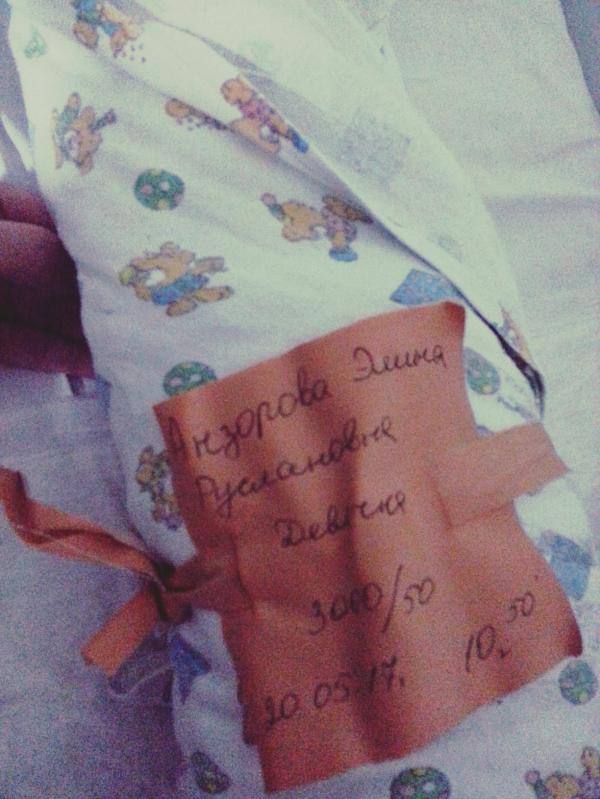 Анзорова Элина
Руслановна
Девочка
3000/50
20.05.17. 10.50